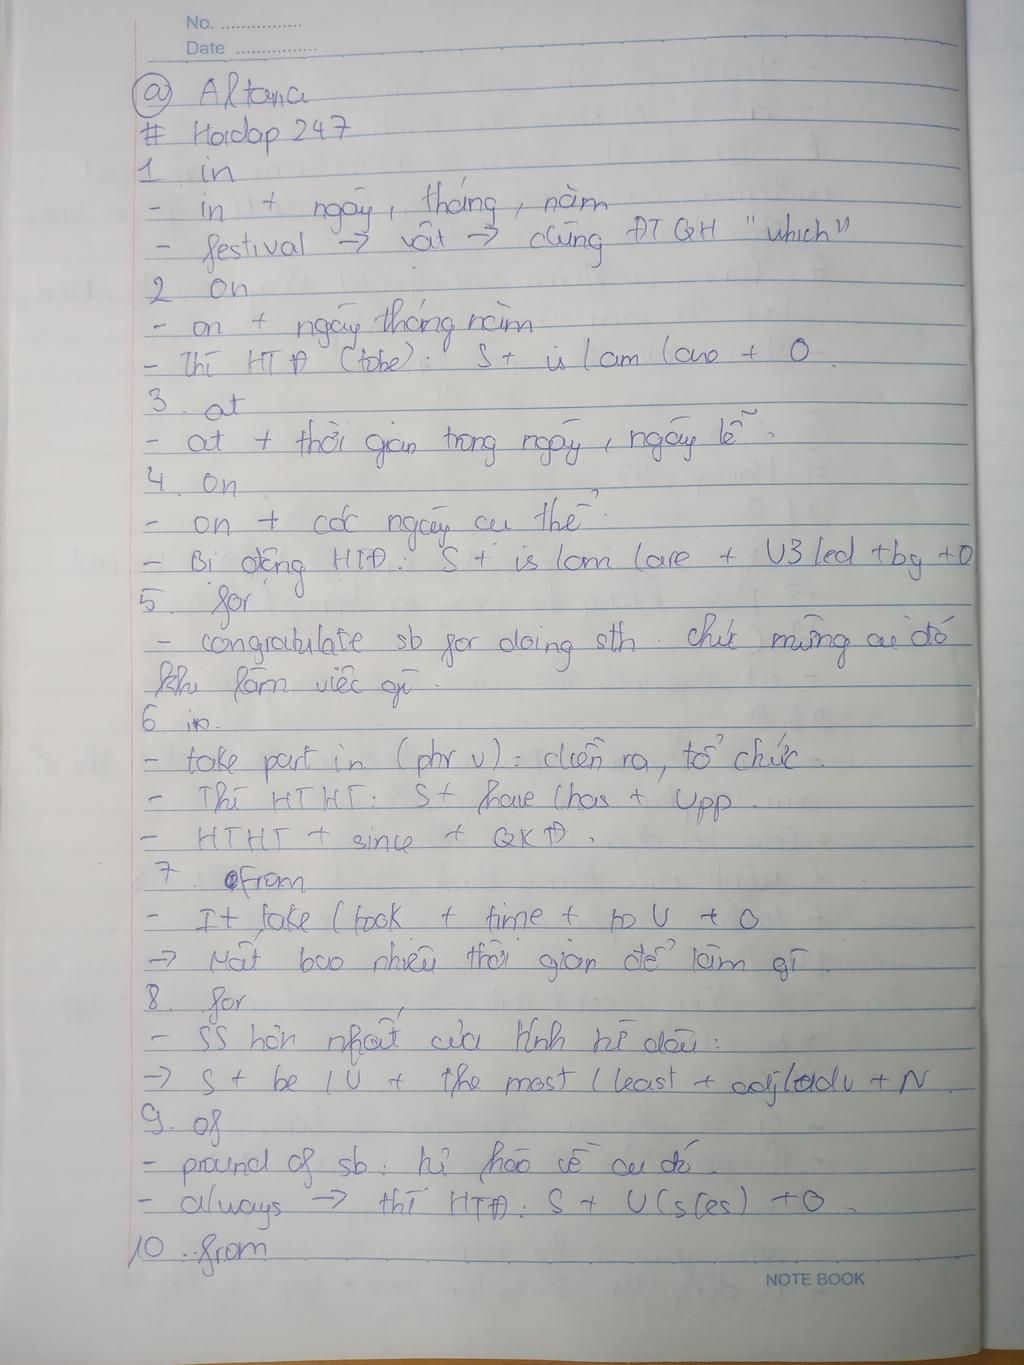 No. ................
Date ................
@ Altana
# Hoidap 247
1 in
- in + ngày, tháng, năm
- festival → vật → dùng ĐTQH "which"
2 on
- on + ngày tháng năm
- Thì HTĐ (tobe): S + is / am / are + O.
3. at
- at + thời gian trong ngày, ngày lễ.
4. on
- on + các ngày cụ thể.
- Bị động HTĐ: S + is / am / are + V3/ed + by + O
5. for
- congratulate sb for doing sth: chúc mừng ai đó
khi làm việc gì.
6 in.
- take part in (phr v): diễn ra, tổ chức.
- Thì HTHT: S + have / has + Vpp.
- HTHT + since + QKĐ.
7 from
- It take / took + time + to V + O
→ Mất bao nhiêu thời gian để làm gì.
8. for
- SS hơn nhất của tính từ dài:
→ S + be / V + the most / least + adj/adv + N.
9. of
- pround of sb: tự hào về ai đó.
- always → thì HTĐ: S + V(s/es) + O.
10. from
NOTE BOOK